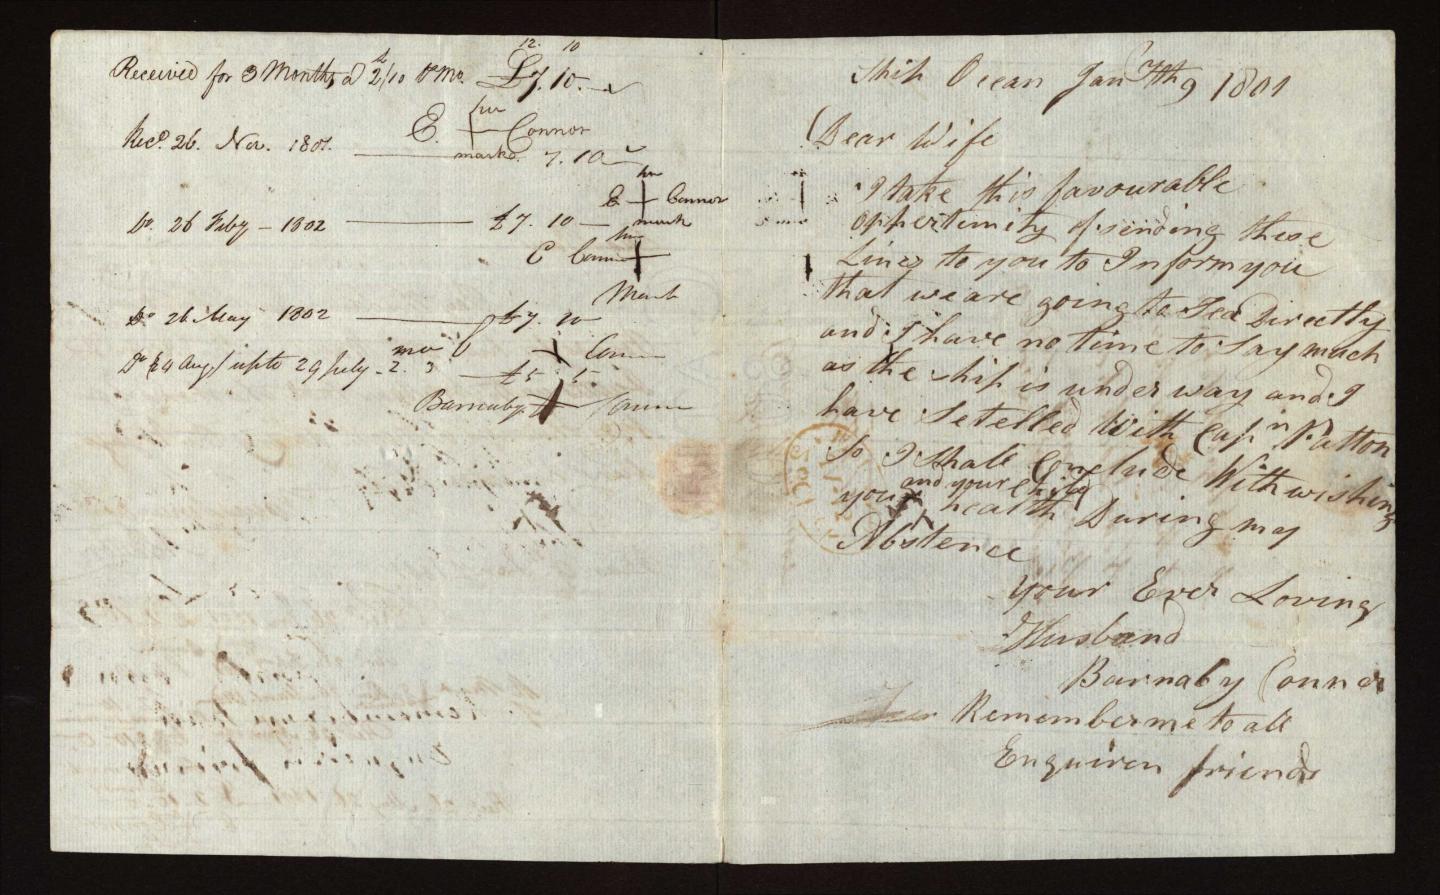 12. 10
Received for 3 Months a 2/10 Pr Mo. £7. 10.
her
E. + Connor
marke
Recd. 26. Nov. 1801. 7. 10
her
E + Connor
mark
Do. 26 Feby - 1802 £7. 10
her
C Conn
Mark
Do 26 May 1802 £7. 10
mo
Do 29 Aug/ upto 29 July - 2. 3 £5. 5
Conn
Barnaby Conn
Ship Ocean Jany 9 1801
Dear Wife
I take this favourable
oppertunity of sending these
Lines to you to Inform you
that we are going to Sea Directly
and I have no time to Say much
as the ship is under way and I
have Setelled With Capn Patton
So I Shall Conclude With wishing
you and your Child health During my
Abstence
your Ever Loving
Husband
Barnaby Conner
Remember me to all
Enquiren friends